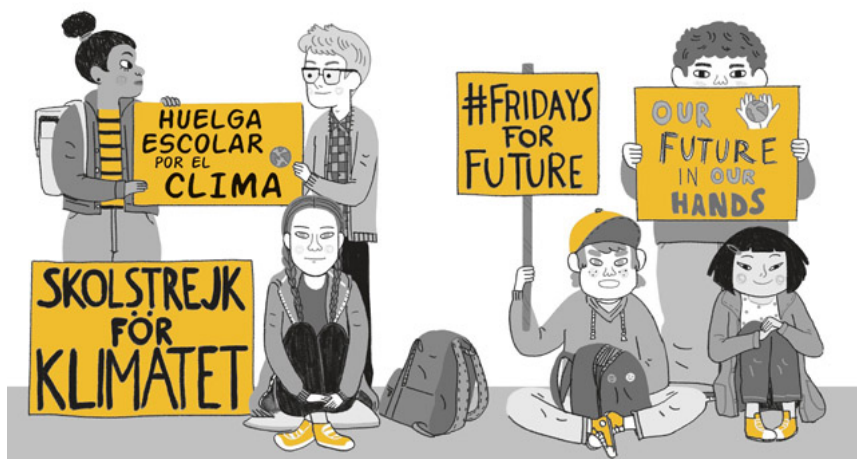 HUELGA
ESCOLAR
POR EL
CLIMA
SKOLSTREJK
FÖR
KLIMATET
#FRIDAYS
FOR
FUTURE
OUR
FUTURE
IN OUR
HANDS